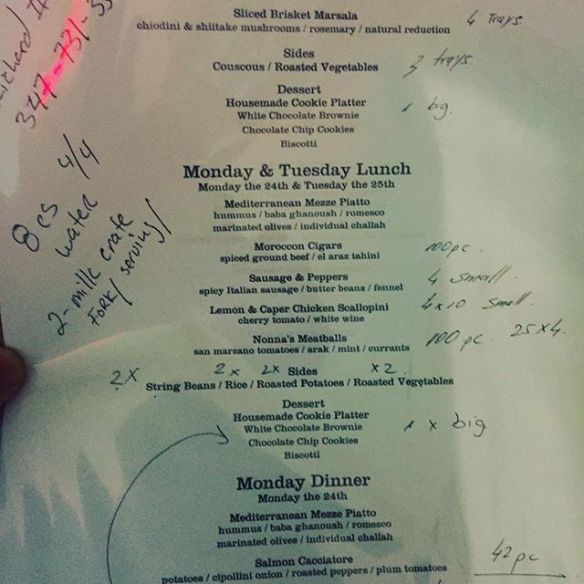 Sliced Brisket Marsala
chiodini & shiitake mushrooms / rosemary / natural reduction
4 Trays.
Sides
Couscous / Roasted Vegetables
3 trays
Dessert
Housemade Cookie Platter
1 big.
White Chocolate Brownie
Chocolate Chip Cookies
Biscotti
347-731-
8 cs 4/4
water
2-milk crate
Fork/serving/
Monday & Tuesday Lunch
Monday the 24th & Tuesday the 25th
Mediterranean Mezze Piatto
hummus / baba ghanoush / romesco
marinated olives / individual challah
Moroccon Cigars
100 pc.
spiced ground beef / el araz tahini
Sausage & Peppers
4 small.
spicy Italian sausage / butter beans / fennel
Lemon & Caper Chicken Scallopini
4 x 10 small.
cherry tomato / white wine
Nonna's Meatballs
100 pc. 25 x 4.
san marzano tomatoes / arak / mint / currants
2X 2x 2x Sides x2
String Beans / Rice / Roasted Potatoes / Roasted Vegetables
Dessert
Housemade Cookie Platter
White Chocolate Brownie
1 x big
Chocolate Chip Cookies
Biscotti
Monday Dinner
Monday the 24th
Mediterranean Mezze Piatto
hummus / baba ghanoush / romesco
marinated olives / individual challah
Salmon Cacciatore
42 pc
potatoes / cipollini onion / roasted peppers / plum tomatoes